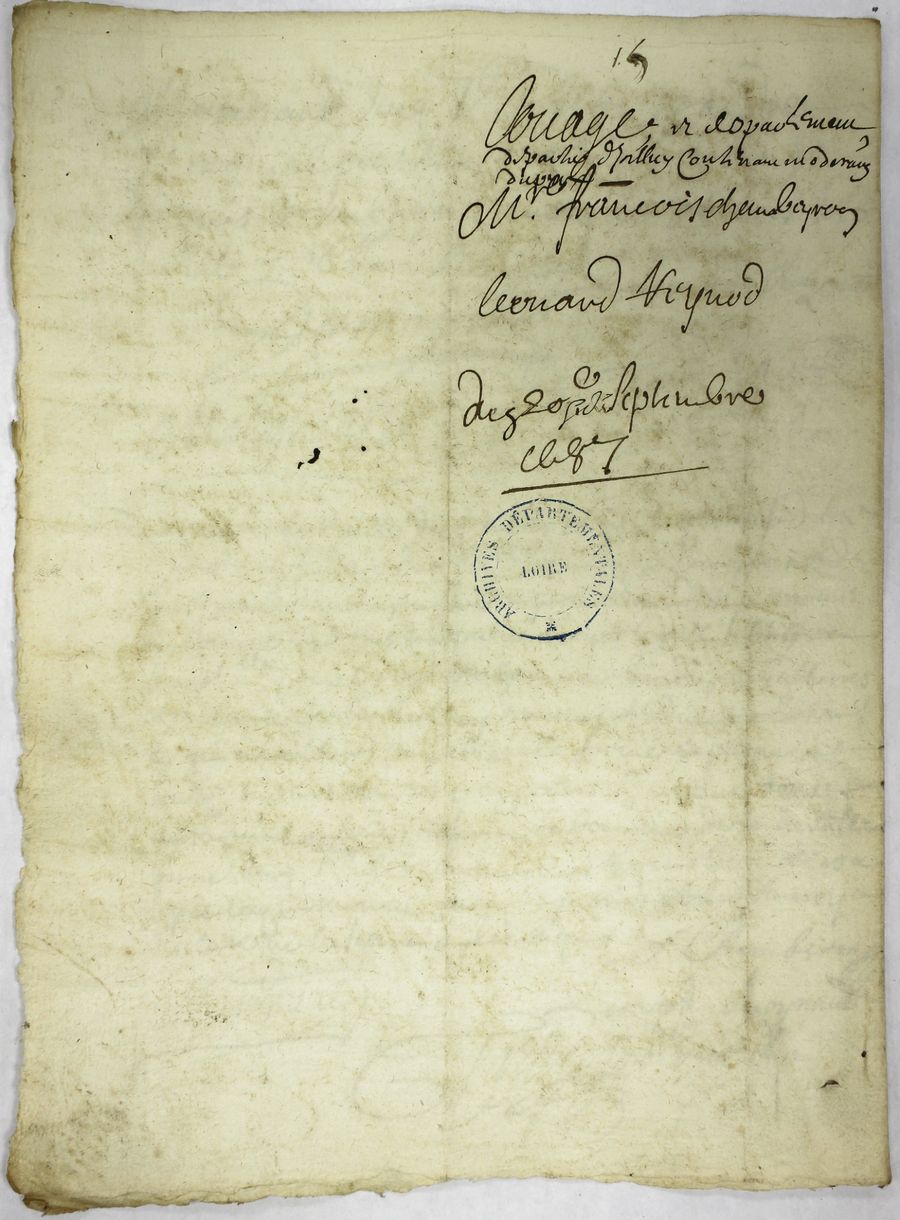 16
Louage et depachement
Contenant moderaõn
du prix
Mr. francois chambeyron
leonard Reynod
du 20e Septembre
1687
ARCHIVES DÉPARTEMENTALES
LOIRE